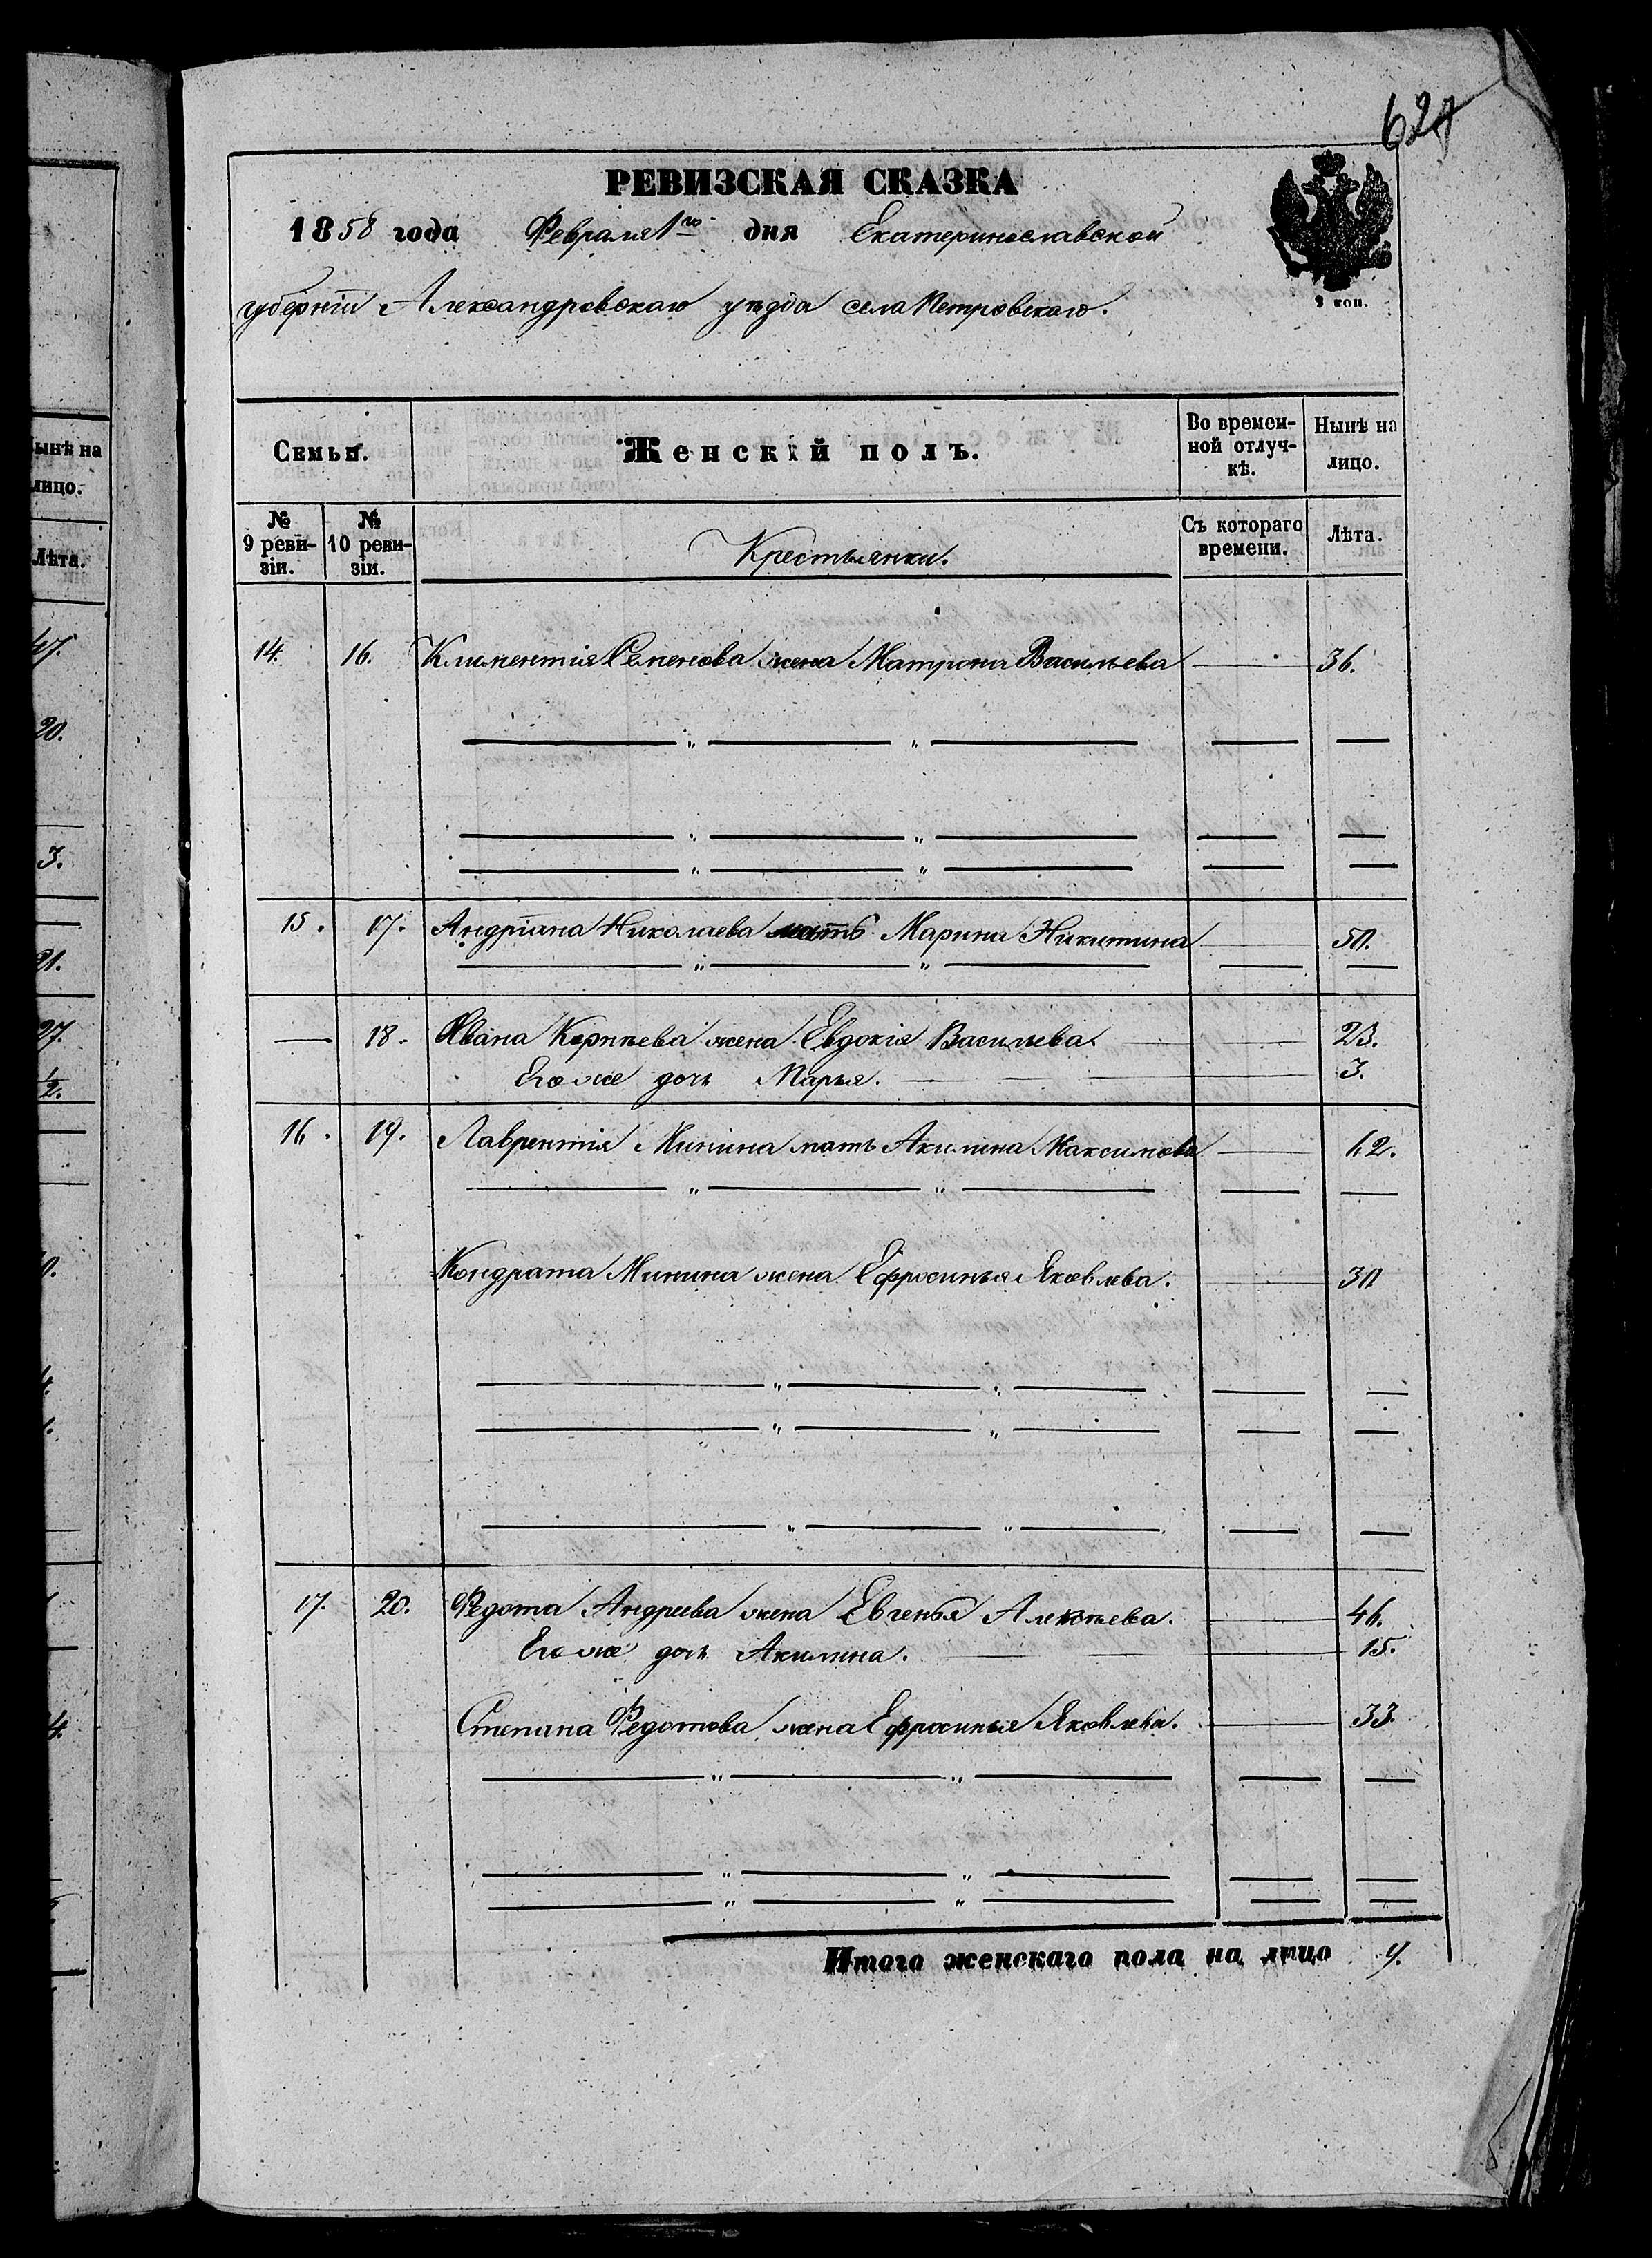 624
РЕВИЗСКАЯ СКАЗКА
1858 года Февраля 1го дня Екатеринославской
губерніи Александровскаго уѣзда села Петровскаго.
2 коп.
Семьи. Женскій полъ. Во временной отлучкѣ. Нынѣ на лицо.
№ 9 ревизіи. № 10 ревизіи. Крестьянки. Съ котораго времени. Лѣта.
14. 16. Климентія Семенова жена Матрона Васильева 36.
15. 17. Андріана Николаева мать Марина Никитина 50.
18. Ивана Корнѣева жена Евдокія Васильева. 23.
Его же дочь Марья. 3.
16. 19. Лаврентія Минина мать Акилина Максимова 62.
Кондрата Минина жена Ефросинья Яковлева. 30
17. 20. Федота Андреева жена Евгенья Алексѣева. 46.
Его же дочь Акилина. 15.
Степана Федотова жена Ефросинья Яковлева. 33.
Итого женскаго пола на лицо 9.
ынѣ на
лицо.
Лѣта.
47.
20.
3.
21.
27.
1/2.